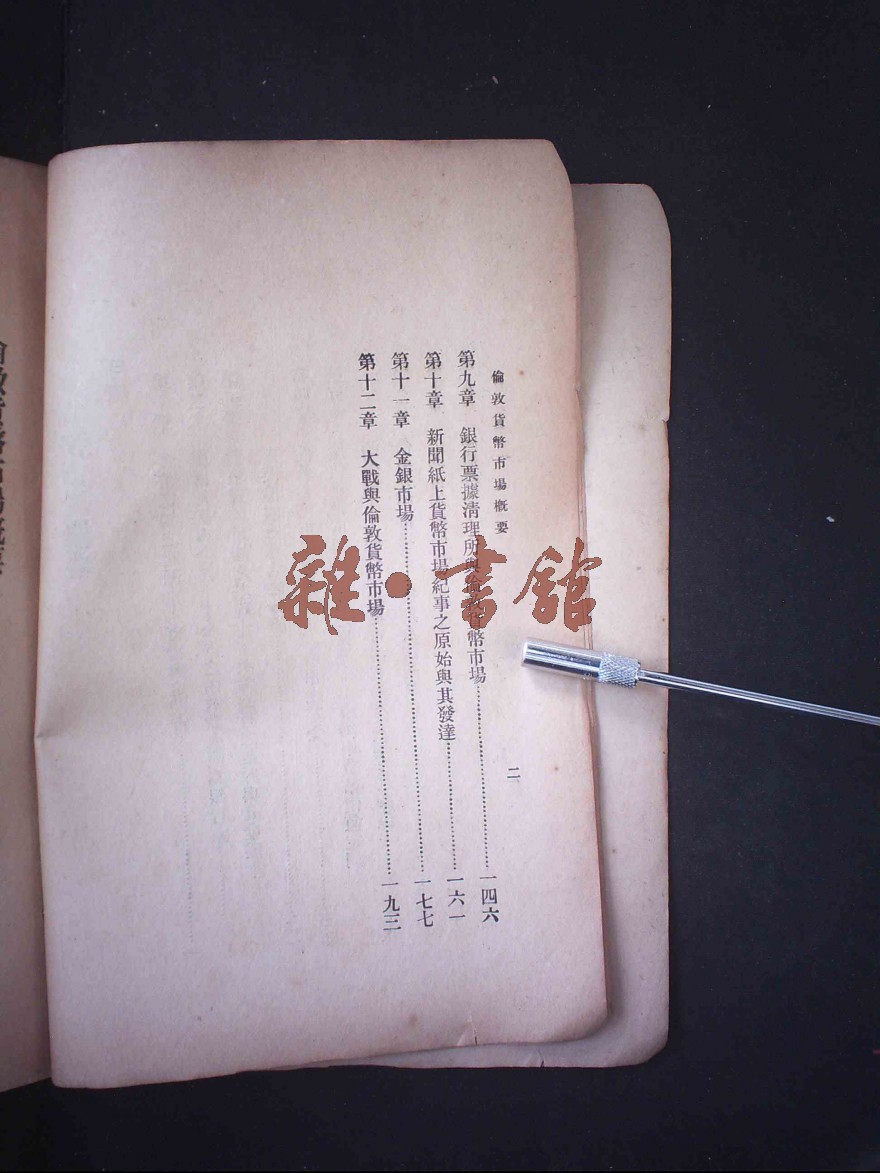 倫敦貨幣市場概要
二
第九章 銀行票據清理所與倫敦貨幣市場……一四六
第十章 新聞紙上貨幣市場紀事之原始與其發達……一六一
第十一章 金銀市場……一七七
第十二章 大戰與倫敦貨幣市場……一九三
雜·書館